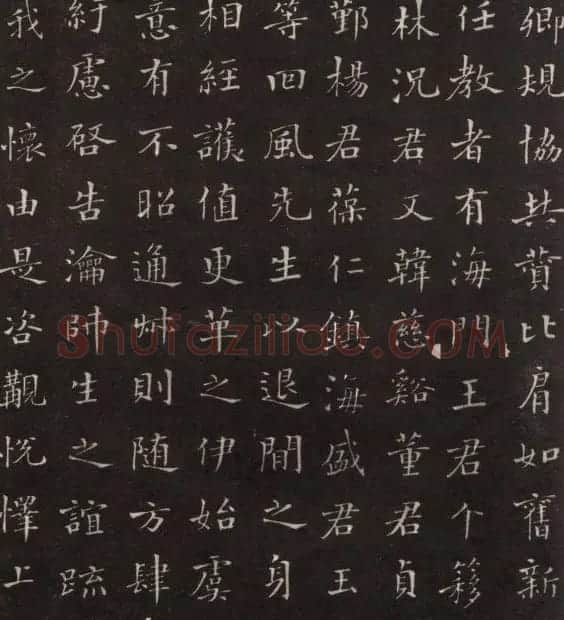 卿規協共賛比肩如舊新
任教者有海門王君个簃
林況君又韓慈谿董君貞
鄞楊君葆仁鎮海盛君玉
等回風先生以退閒之身
相經護值更革之伊始虞
意有不昭通則随方肆
紆慮啓告瀹師生之誼疏
我之懷由是咨觀悅懌上
Shufaziliao.COM